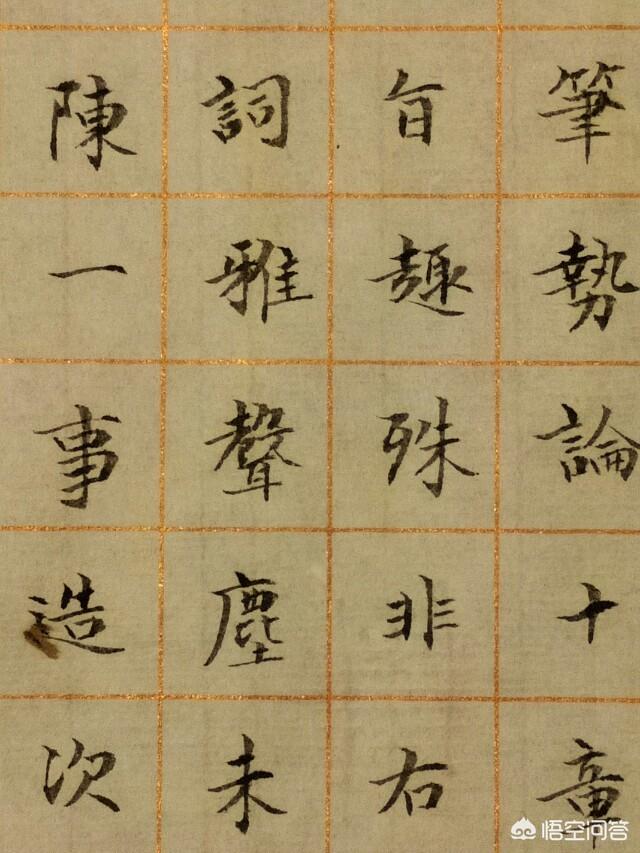 筆勢論十章
旨趣殊非右
詞雅聲塵未
陳一事造次
悟空问答